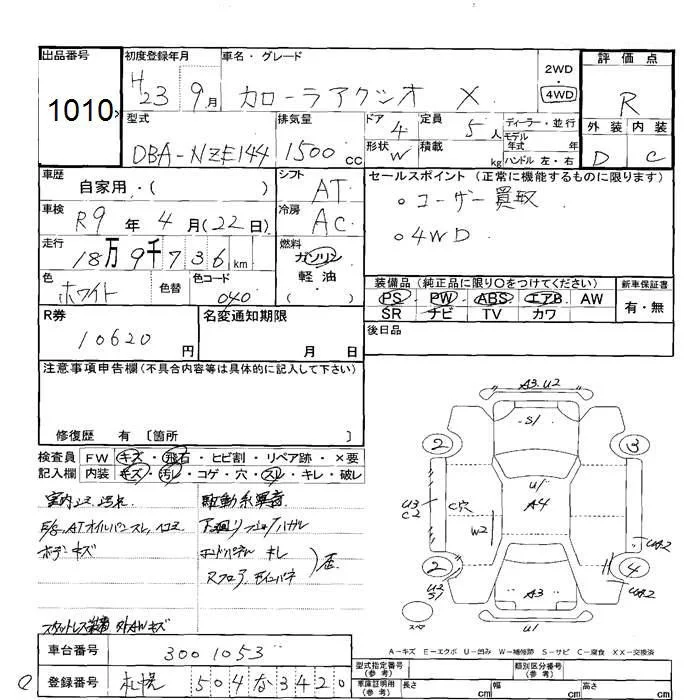 出品番号 初度登録年月 車名・グレード 2WD 4WD 評価点
1010 H23 9月 カローラアクシオ X R
型式 排気量 ドア 定員 ディーラー・並行 外装 内装
DBA-NZE144 1500cc 4 5人 モデル年式 年 D C
形状 W 積載 kg ハンドル 左・右
車歴 自家用・( ) シフト AT セールスポイント(正常に機能するものに限ります)
車検 R9年4月(22日) 冷房 AC
。ユーザー買取
。4WD
走行 18万9千736km 燃料 ガソリン 軽油 ( )
色 ホワイト 色替 色コード 040
装備品(純正品に限り○をつけてください) 新車保証書
PS PW ABS エアB AW 有・無
SR ナビ TV カワ
R券 10620円 名変通知期限 月 日 後日品
注意事項申告欄(不具合内容等は具体的に記入して下さい)
修復歴 有 〔箇所 〕
検査員 FW キズ・飛石・ヒビ割・リペア跡・×要
記入欄 内装 キズ・汚レ・コゲ・穴・スレ・キレ・破レ
駆動系異音
ATオイルパンスレ、ヘコミ
ボデーキズ
キレ
Rフロア
歪
A3.U2
S1
2 3
U1
A4
U3
C2
C穴
W2
2 4
U2
S1
A3
U1
スペア
A-キズ E-エクボ U-凹み W-補修跡 S-サビ C-腐食 XX-交換済
車台番号 3001053
登録番号 札幌 504 な 3420
型式指定番号(参考) 類別区分番号(参考)
車庫証明用(参考) 長さ cm 幅 cm 高さ cm